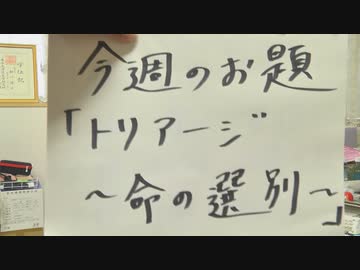 今週のお題
「トリアージ
～命の選別～」